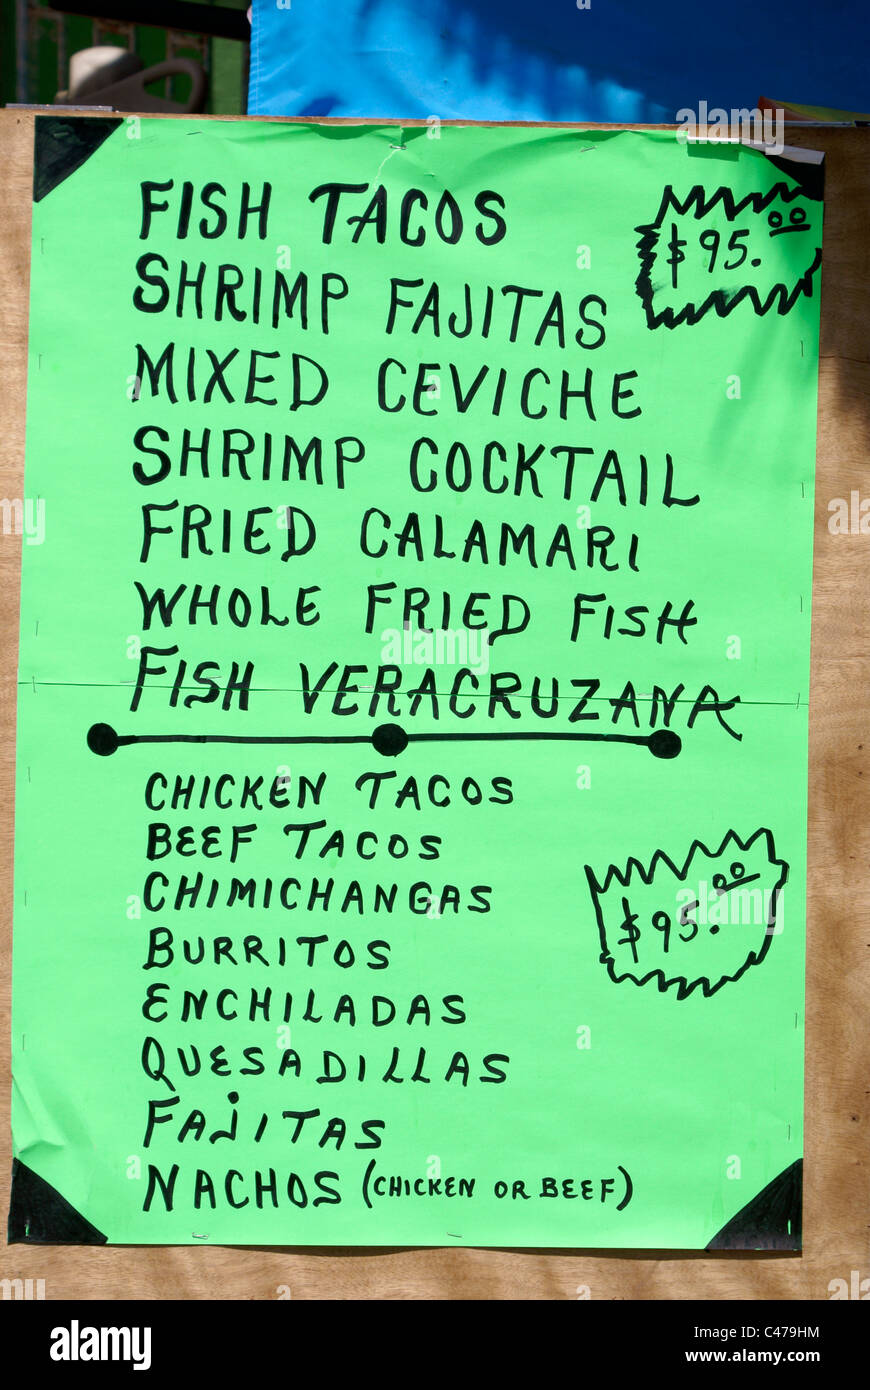 FISH TACOS
$95.00
SHRIMP FAJITAS
MIXED CEVICHE
SHRIMP COCKTAIL
FRIED CALAMARI
WHOLE FRIED FISH
FISH VERACRUZANA
CHICKEN TACOS
BEEF TACOS
CHIMICHANGAS
$95.00
BURRITOS
ENCHILADAS
QUESADILLAS
FAJITAS
NACHOS (CHICKEN OR BEEF)
alamy
Image ID: C479HM
www.alamy.com